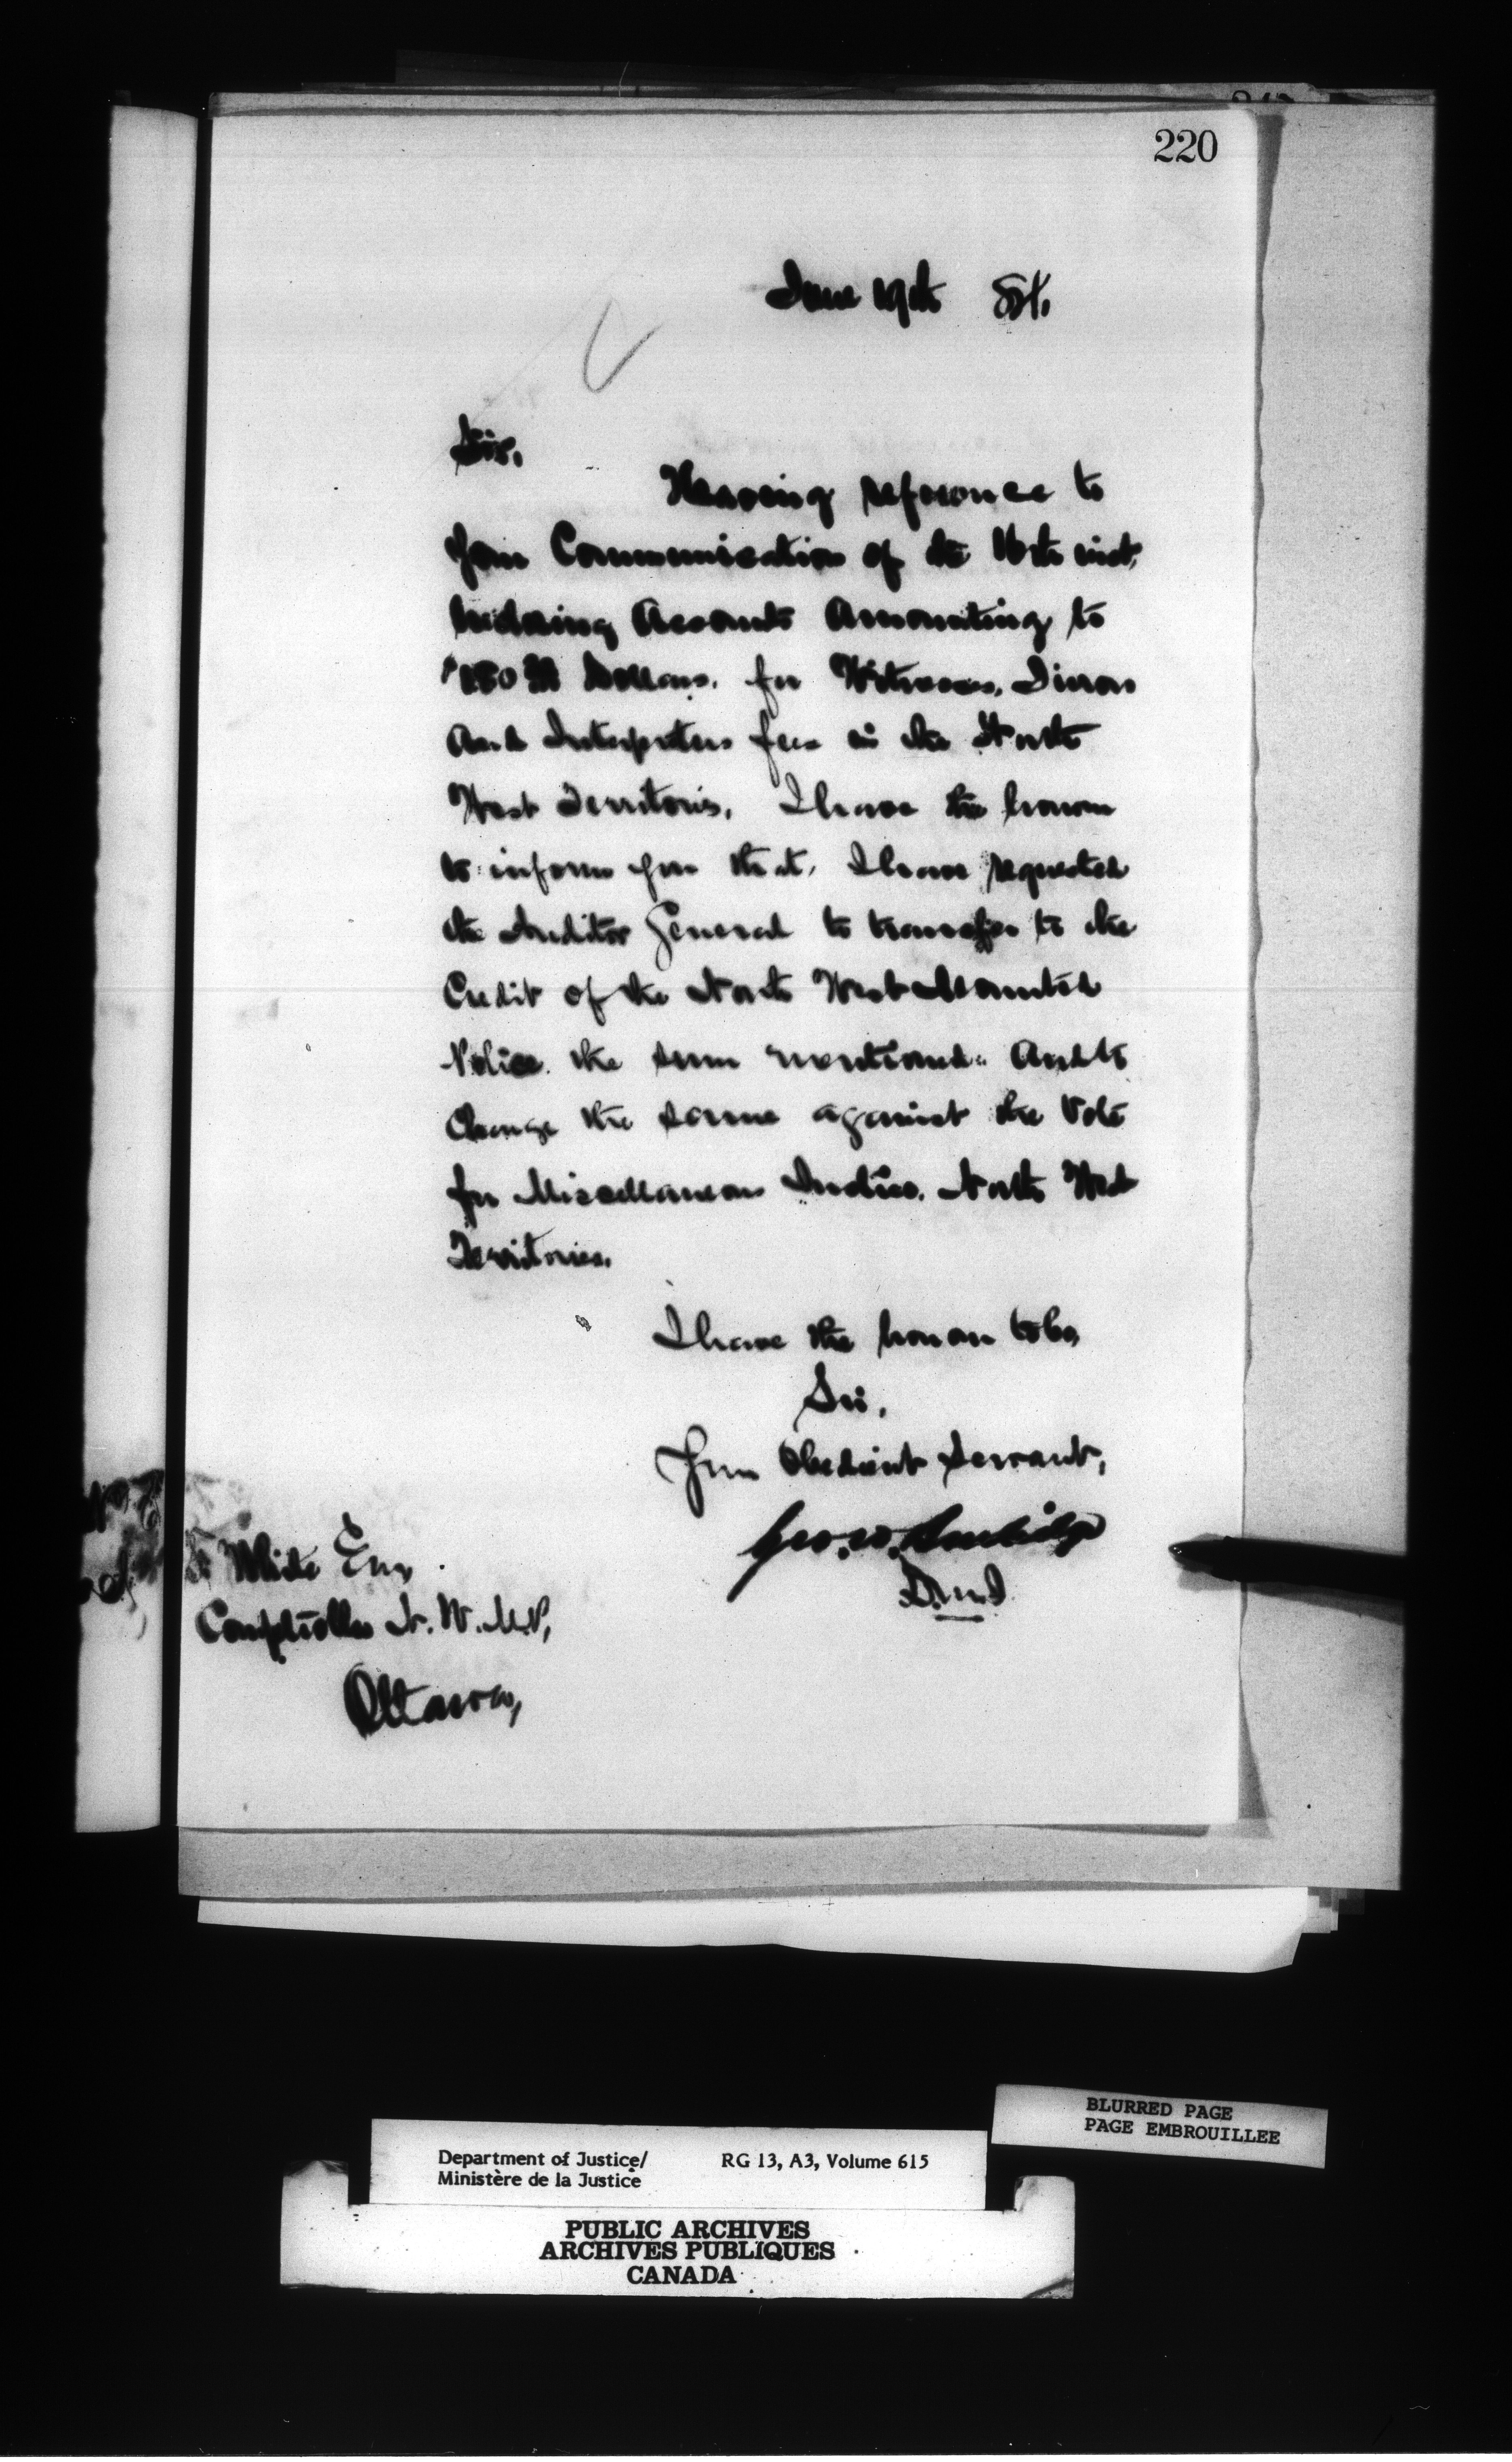 220
June 19th 84.
Sir,
Having reference to
Your Communication of the 16th inst,
Inclosing Accounts Amounting to
Dollars. for Witnesses, Jurors
And Interpreters fees in the North
West Territories, I have the honour
to inform you that, I have requested
the Auditor General to transfer to the
Credit of the North West Mounted
Police. the sum mentioned. And to
Charge the same against the Vote
for Miscellaneous Justice. North West
Territories.
I have the honour to be,
Sir,
Your Obedient Servant,
Geo. W. Burbidge
D.M.J.
White Esq
Comptroller N.W.M.P,
Ottawa,
BLURRED PAGE
PAGE EMBROUILLEE
Department of Justice/ RG 13, A3, Volume 615
Ministère de la Justice
PUBLIC ARCHIVES
ARCHIVES PUBLIQUES
CANADA